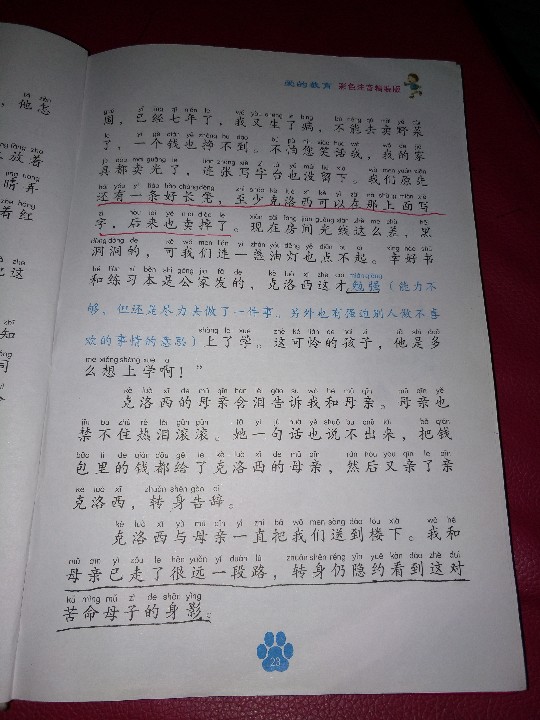 爱的教育 彩色注音精装版
国，已经七年了，我又生了病，不能去卖野菜
了，一个钱也挣不到。不怕您笑话我，我的家
具都卖光了，连张写字台也没留下。我们原先
还有一条好长凳，至少克洛西可以在那上面写
字，后来也卖掉了。现在房间光线这么差，黑
洞洞的，可我们连一盏油灯也点不起。幸好书
和练习本是公家发的，克洛西这才勉强（能力不
够，但还是尽力去做了一件事。另外也有强迫别人做不喜
欢的事情的意思）上了学。这可怜的孩子，他是多
么想上学啊！”
克洛西的母亲含泪告诉我和母亲。母亲也
禁不住热泪滚滚。她一句话也说不出来，把钱
包里的钱都给了克洛西的母亲，然后又亲了亲
克洛西，转身告辞。
克洛西与母亲一直把我们送到楼下。我和
母亲已走了很远一段路，转身仍隐约看到这对
苦命母子的身影。
23